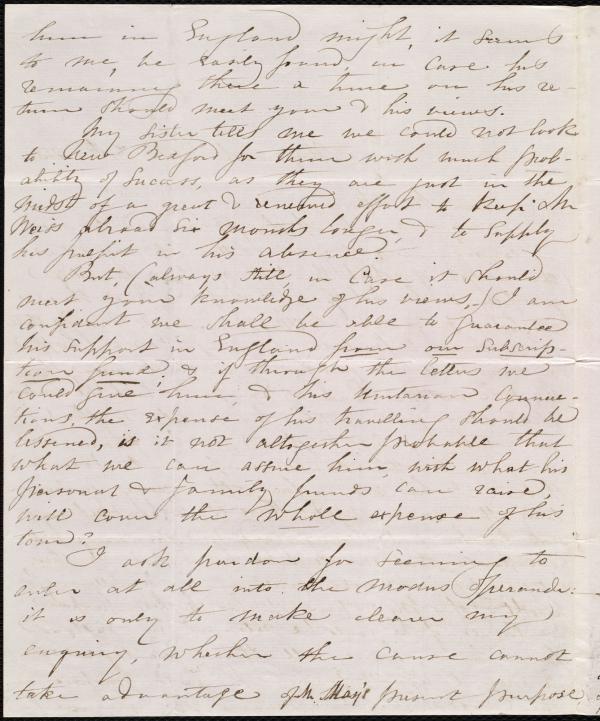 him in England might, it seems
to me, be easily found, in case his
remaining there a time, on his re-
turn should meet your & his views.
My sister tells me we could not look
to New Bedford for them with much prob-
ability of success, as they are just in the
midst of a great & renewed effort to keep Mr
Weiss abroad six months longer, & to supply
his pulpit in his absence.
But, (always still, in case it should
meet your knowledge of his views,) I am
confident we shall be able to guarantee
his support in England from our subscrip-
tion fund; & if through the letters we
could give him, & his Unitarian connec-
tions, the expense of his travelling should be
lessened, is it not altogether probable that
what we can assure him, with what his
personal & family friends can raise,
will cover the whole expense of his
tour?
I ask pardon for seeming to
enter at all into the modus operandi:
it is only to make clearer my
enquiry, whether the cause cannot
take advantage of Mr. May's present purpose